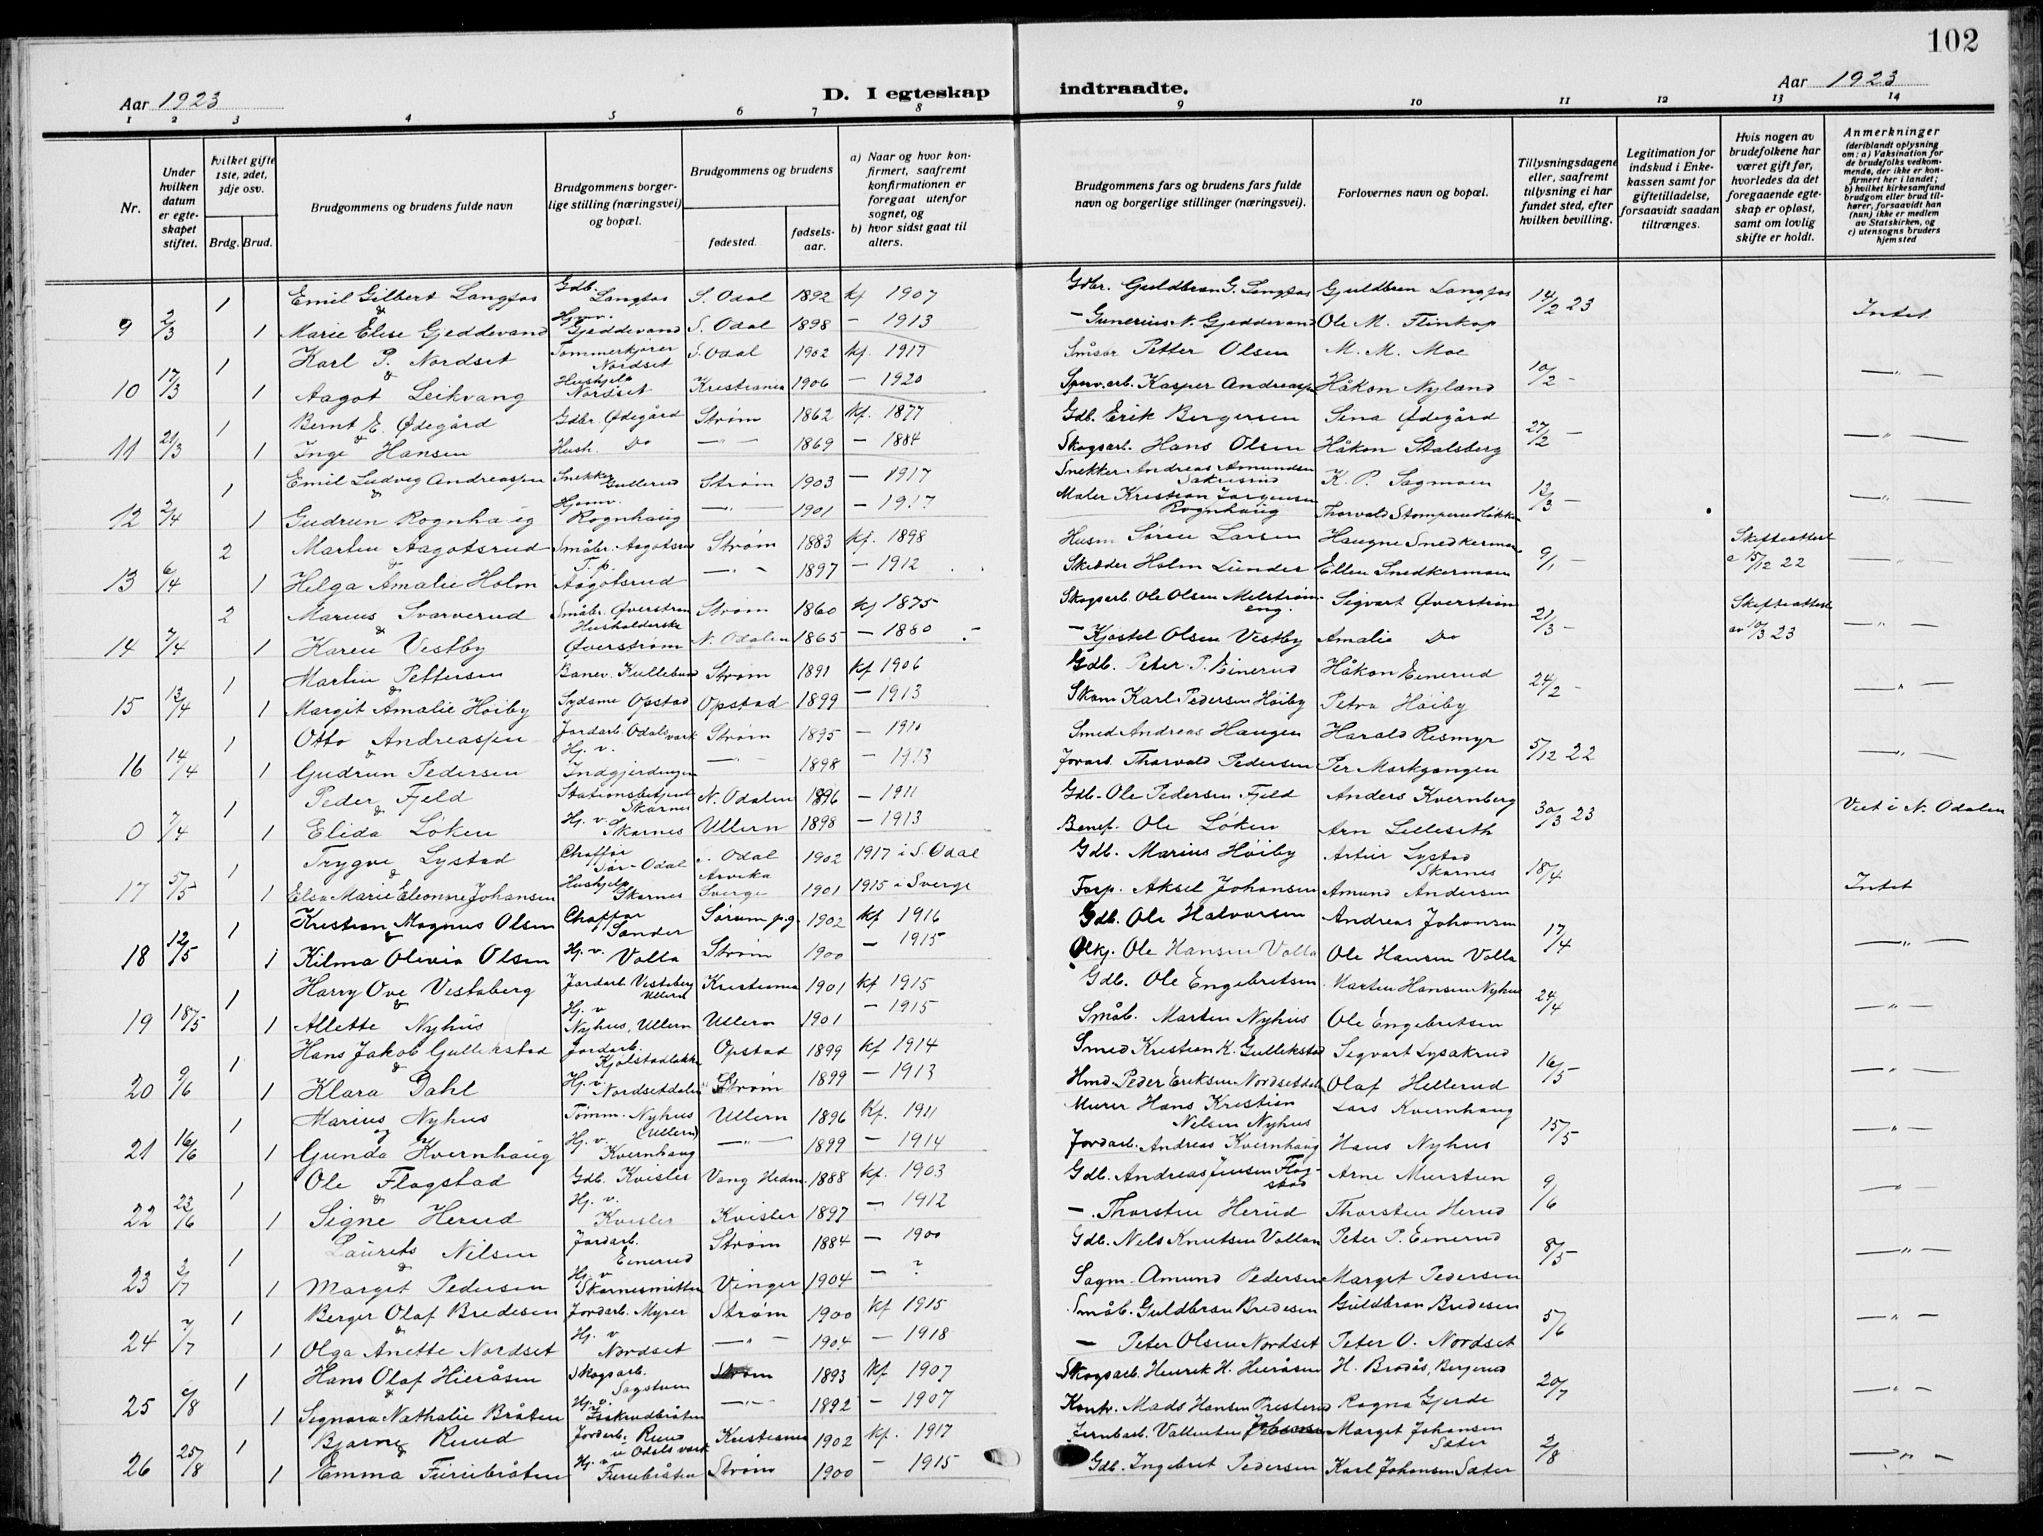 102
Aar 1923
D. I egteskap indtraadte.
Aar 1923
1 2 3 4 5 6 7 8 9 10 11 12 13 14
Nr.
Under hvilken datum er egteskapet stiftet.
Hvilket gifte 1ste, 2det, 3dje osv.
Brdg. Brud.
Brudgommens og brudens fulde navn
Brudgommens borgerlige stilling (næringsvei) og bopæl.
Brudgommens og brudens
fødested. fødselsaar.
a) Naar og hvor konfirmert, saafremt konfirmationen er foregaat utenfor sognet, og
b) hvor sidst gaat til alters.
Brudgommens fars og brudens fars fulde navn og borgerlige stillinger (næringsvei).
Forlovernes navn og bopæl.
Tillysningsdagene eller, saafremt tillysning ei har fundet sted, efter hvilken bevilling.
Legitimation for indskud i Enkekassen samt for giftetilladelse, forsaavidt saadan tiltrænges.
Hvis nogen av brudefolkene har været gift før, hvorledes da det foregaaende egteskap er opløst, samt om lovlig skifte er holdt.
Anmerkninger (deriblandt oplysning om: a) Vaksination for de brudefolks vedkommende, der ikke er konfirmert her i landet; b) hvilket kirkesamfund brudgom eller brud tilhører, forsaavidt han (hun) ikke er medlem av Statskirken, og c) utensogns bruders hjemsted
1 Emil Gilbert Langfos Gdb. Langfos S. Odal 1892 kf 1907 Gdbr. Guldbran G. Langfos Guldbren Langfos 14/2 23 Intet
9 2/3 1 & Marie Elise Gjeddevand Hjvv. Gjeddevand S. Odal 1898 - 1913 - Gunerius N. Gjeddevand Ole M. Flinkop
1 Karl P. Nordset Tømmerkjører Nordset S. Odal 1902 kf. 1917 Småbr Petter Olsen M. M. Moe 10/2 -
10 17/3 1 & Aagot Leikvang Hushjelp Nordset Kristiania 1906 - 1920 Kasper Andreas Håkon Nyland
1 Bernt E. Ødegård Gdbr. Ødegård Strøm 1862 kf. 1877 Gdb. Erik Bergersen Sina Ødegård 27/2 -
11 21/3 1 & Inge Hansen Hush. Do -"- 1869 - 1884 Skogsarb. Hans Olsen Håkon Stalsberg
1 Emil Ludvig Andreassen Snekker Gullerud Strøm 1903 - 1917 Snekker Andreas Amundsen Sakresrud K. P. Sagmoen 13/3 -
12 2/4 1 & Gudrun Rognhaug Hjemv. Rognhaug -"- 1901 - 1917 Maler Kristian Jørgensen Rognhaug Thorvald
2 Martin Aagotsrud Småbr. Aagotsrud Strøm 1883 kf. 1898 Husm Søren Larsen Haugne Smedkermoen 9/1 - Skifteattest 15/12 22
13 6/4 1 & Helga Amalie Holm T. p. Aagotsrud -"- 1897 - 1912 Skrædder Holm Lunder Ellen Smedkermoen
2 Marius Svarverud Småbr. Øverstrøm Strøm 1860 kf 1875 Skogsarb. Ole Olsen Melstrømeng. Sigvart Øverstrøm 21/3 - Skifteattest av 10/3 23
14 7/4 1 & Karen Vestby Husholderske Øverstrøm N. Odalen 1865 - 1880 - Kjøstel Olsen Vestby Amalie Do
1 Martin Pettersen Banev. Kullebund Strøm 1891 kf 1906 Gdb. Peter P. Einerud Håkon Einerud 24/2 -
15 13/4 1 & Margit Amalie Høiby Sydsme Opstad Opstad 1899 - 1913 Skom Karl Pedersen Høiby Petra Høiby
1 Otto Andreassen Jordarb. Odals verk Strøm 1895 - 1910 Smed Andreas Haugen Harald Resmyr 5/12 22
16 14/4 1 & Gudrun Pedersen Hj. v. Indgjerdingen -"- 1898 - 1913 Jorarb Thorvald Pedersen Per Markgangen
1 Peder Fjeld Stationsbetjent Skarnes N. Odalen 1896 - 1911 Gdb. Ole Pedersen Fjeld Anders Kvernberg 30/3 23 Viet i N. Odalen
0 7/4 1 & Elida Løken Hj. v. Skarnes Ullern 1898 - 1913 Ole Løken Arn Lilleseth
1 Trygve Lystad Chaffør Sør-Odal S. Odal 1902 1917 i S. Odal Gdb. Marius Høiby Artur Lystad Skarnes 18/4 Intet
17 5/5 1 & Elsa Marie Eleonore Johansen Hushjelp Skarnes Arvika Sverge 1901 1915 i Sverge Forp. Aksel Johansen Amund Andersen
1 Kristian Magnus Olsen Chaffør Sander Sørum p.g. 1902 kf 1916 Gdb. Ole Halvorsen Andreas Johansen 17/4
18 12/5 1 & Kilma Olivia Olsen Hj. v. Volla Strøm 1900 - 1915 Ole Hansen Volla Ole Hansen Volla
1 Harry Ove Vestaberg Jordarb. Vestaberg Ullern Kristiania 1901 kf 1915 Gdb. Ole Engebretsen Marten Hansen Nyhus 24/4
19 18/5 1 & Allette Nyhus Hj. v Nyhus, Ullern Ullern 1901 - 1915 Småb. Marten Nyhus Ole Engebretsen
1 Hans Jakob Gullekstad Jordarb. Kjølstadløkka Opstad 1899 kf 1914 Smed Kristian K. Gullekstad Segvart Lysakrud 16/5
20 9/6 1 & Klara Dahl Hj. v. Nordsetdalen Strøm 1899 - 1913 Hmd. Peder Eriksen Nordsetdalen Olaf Hellerud
1 Marius Nyhus Tømm. Nyhus (Ullern) Ullern 1896 Kf. 1911 Murer Hans Kristian Nilsen Nyhus Lars Kvernhaug 15/5
21 16/6 1 og Gunda Kvernhaug Hj. v. Kvernhaug -"- 1899 - 1914 Jordarb. Andreas Kvernhaug Hans Nyhus
1 Ole Flagstad Gdb. Kvisler Vang Hedm. 1888 kf. 1903 Gdb. Andreas Jensen Flagstad Arne Murstun 9/6
22 23/6 1 & Signe Herud Hj. v. Kvisler Kvisler 1897 - 1912 -. Thorsten Herud Thorsten Herud
1 Laurits Nilsen Jordarb. Einerud Strøm 1884 - 1900 Gdb. Nels Knutsen Vollan Peter P. Einerud 8/5
23 3/7 1 & Marget Pedersen Hj. v Skarnesmitten Vinger 1904 - ? Sagm. Amund Pedersen Marget Pedersen
1 Berger Olaf Bredesen Jordarb. Myrer Strøm 1900 kf 1915 Småb. Guldbran Bredesen Guldbran Bredesen 5/6
24 7/7 1 & Olga Anette Nordset Hj. v Nordset -"- 1904 - 1918 - Peter Olsen Nordset Peter O. Nordset
1 Hans Olaf Hieråsen Skogsarb. Sagstuen Strøm 1893 kf 1907 Skogsarb. Henrik H. Hieråsen H. Brodås, Bergerud 20/7
25 /8 1 & Segnora Nathalie Bråten Hj. v. -"- 1892 - 1907 Kontr. Mads Hansen Presterud Ragna Gjerde
1 Bjarne Ruud Jordarb. Ruud u Odals verk Kristiania 1902 kf. 1917 Jernbarb. Vallenten Johansen Marget Johansen Sæter 2/8
26 25/8 1 & Emma Furubråten Hj. v. Furubråten Strøm 1900 - 1915 Gdb. Ingebret Pedersen Karl Johansen Sæter